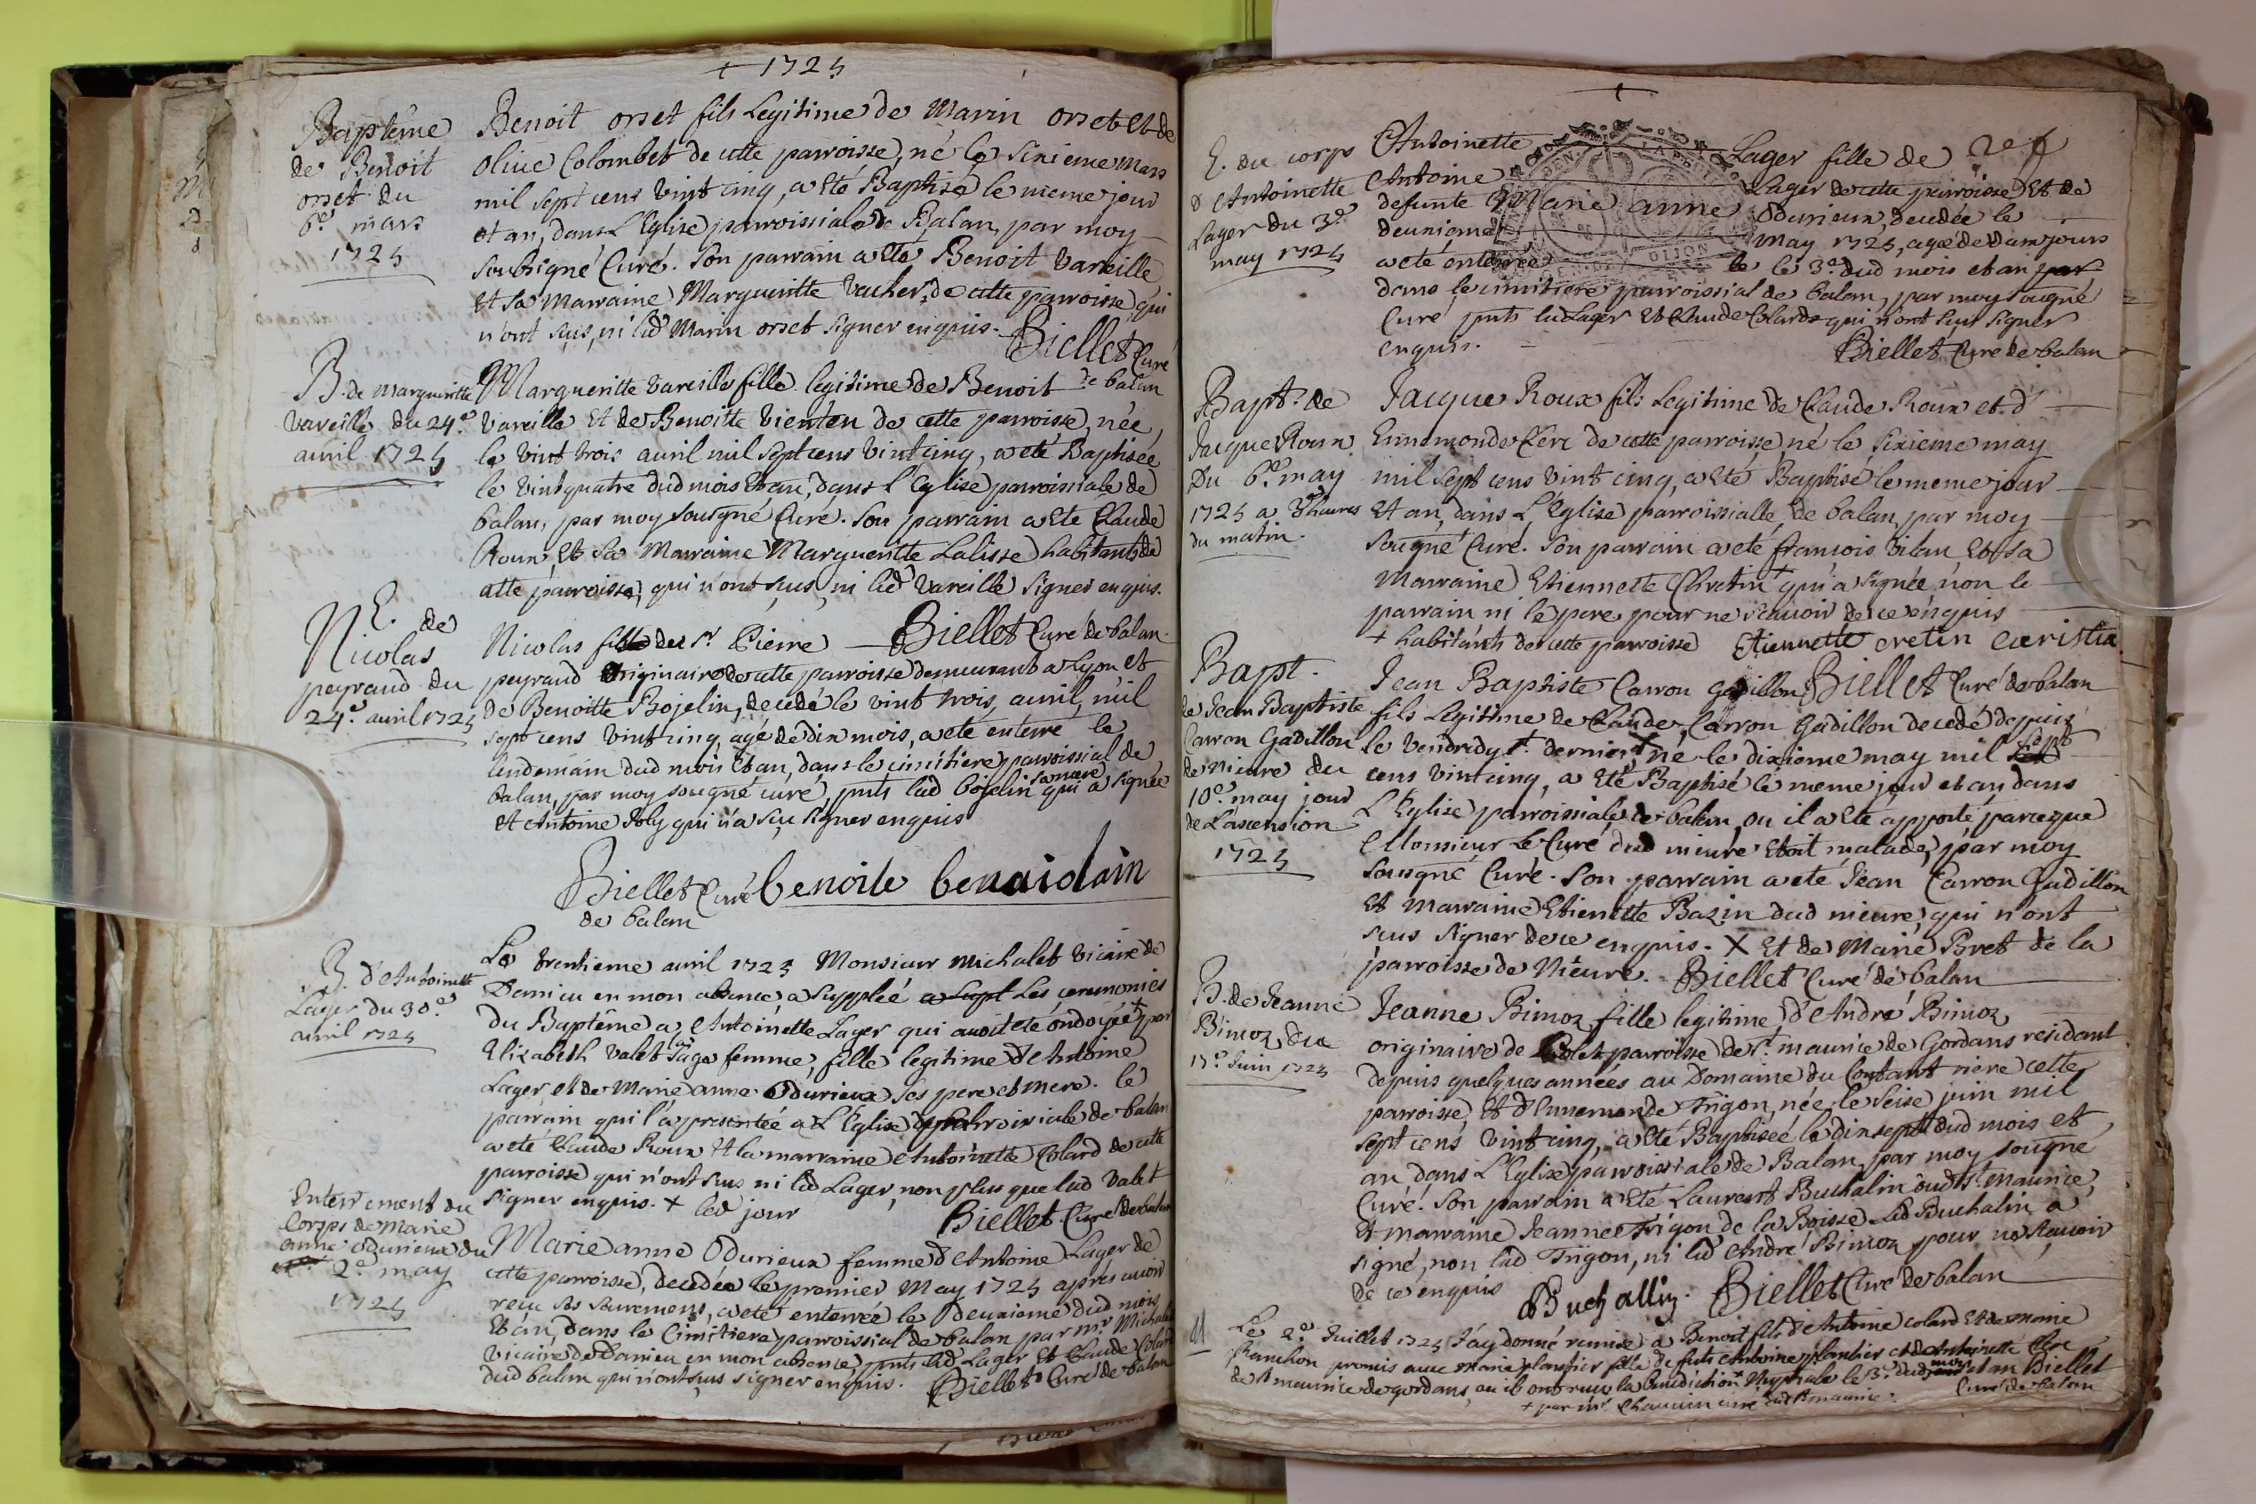 + 1725
Baptême
de Benoit
orset du
6e mars
1725
Benoit orset fils Legitime de Marin orset et de
olive Colombet de cette parroisse, né le sixieme mars
mil sept cens vint cinq, a eté Baptisé le meme jour
et an, dans L'Eglise parroissiale de Balan, par moy
soubsigné Curé. Son parrain a eté Benoit Vareille
et sa marraine Margueritte Vacher, de cette parroisse, qui
n'ont sçus, ni led Marin orset signer enquis. Biellet Curé
de balan
B. de margueritte
Vareille du 24e
avril 1725
Margueritte Vareille fille legitime de Benoit
Vareille et de Benoitte Vienten de cette parroisse, née,
le vint trois avril mil sept cens vint cinq, a eté Baptisée
le vintquatre dud mois et an, dans L'Eglise parroissiale de
balan, par moy sousigné Curé. Son parrain a eté Claude
Roux, et sa Marraine Margueritte Lalisse habitants de
cette parroisse, qui n'ont sçus, ni led Vareille signer enquis.
Biellet Curé de balan
E. de
Nicolas
peyraud du
24e avril 1725
Nicolas fils de sr Pierre
peyraud originaire de cette parroisse demeurant a Lyon et
de Benoitte Bojelin, decedé le vint trois, avril, mil
sept cens vint cinq, agé de dix mois, a eté enterré le
lendemain dud mois et an, dans le cimitiere parroissial de
balan, par moy sousigné curé, pnts lad bojelin sa mere qui a signée
et Antoine Joly qui n'a sçu signer enquis
Biellet Curé benoite benaidain
de balan
B. d'Antoinette
Lager du 30e
avril 1725
Le trentieme avril 1725 Monsieur Michalet Vicaire de
Damieu en mon absence, a supplée a supl Les ceremonies
du Baptême a Antoinette Lager qui avoit eté ondoyée + par
Elizabeth Valet sage femme, fille legitime d'Antoine
Lager, et de Marie anne Odurieux ses pere et mere. le
parrain qui l'a presentée a L'Eglise parroissiale de balan
a eté Claude Roux et la marraine Antoinette Colard de cette
parroisse qui n'ont sçus ni led Lager, non plus que lad Valet
signer enquis. + led jour Biellet Curé de balan
Enterrement du
Corps de Marie
anne Odurieux du
2e may
1725
Marie anne Odurieux femme d'Antoine Lager de
cette parroisse, decedée le premier May 1725 aprés avoir
reçu ses sacremens, a eté enterrée le deuxieme dud mois
et an, dans le Cimitiere parroissial de balan par mr Michalet
Vicaire de Damieu en mon absence, pnts led Lager et Claude Colard
dud balan qui n'ont sçus signer enquis. Biellet Curé de balan
+
E. du corps
d'Antoinette
Lager du 3e
may 1725
Antoinette Lager fille de
Antoine Lager de cette parroisse et de
defunte Marie anne Odurieux, decedée le
deuxieme may 1725, agée de
a eté enterrée le 3e dud mois et an par
dans le cimitiere parroissial de balan, par moy sousigné
Curé pnts led Lager et Claude Colard qui n'ont sçus signer
enquis. Biellet Curé de balan
Bapt. de
Jacque Roux
Du 6e may
1725 a 8 heures
du matin.
Jacque Roux fils Legitime de Claude Roux et d'
Ennemonde Clerc de cette parroisse, né le sixieme may
mil sept cens vint cinq, a eté Baptisé le meme jour
et an, dans L'Eglise parroissialle de balan par moy
sousigné Curé. Son parrain a eté françois Vilan et sa
marraine Etiennette Chretin + qui a signée, non le
parrain ni le pere pour ne sçavoir de ce enquis
+ habitants de cette parroisse Etiennette cretin
Biellet Curé de balan
Bapt.
de Jean Baptiste
Carron Gadillon
de nieure du
10e may jour
de L'ascension
1725
Jean Baptiste Carron Gadillon
fils Legitime de Claude Carron Gadillon decedé depuis
le vendredy st dernier, X né le dixieme may mil sept
cens vint cinq, a eté Baptisé le meme jour et an dans
L'Eglise parroissiale de balan, ou il a eté apporté parceque
Monsieur Le Curé dud nieure etoit malade, par moy
sousigné Curé. Son parrain a eté Jean Carron Gadillon
et marraine Etiennette Bazin dud nieure, qui n'ont
sçus signer de ce enquis. X et de Marie Bret de la
parroisse de Nieure. Biellet Curé de balan
B. de Jeanne
Bimoz du
17e Juin 1725
Jeanne Bimoz fille legitime d'André Bimoz
originaire de parroisse de st. maurice de Gordans residant
depuis quelques années au Domaine du Contant riere cette
parroisse et d'Ennemonde Trigon, née le seise juin mil
sept cens vint cinq, a eté Baptisée le dixsept dud mois et
an dans L'Eglise parroissiale de Balan par moy sousigné
Curé. Son parrain a eté Laurent Buchalin dud st maurice,
et marraine Jeanne Trigon de la Boisse. Led Buchalin a
signé, non lad Trigon, ni led André Bimoz pour ne sçavoir
de ce enquis Buchallin. Biellet Curé de balan
Le 2e Juillet 1725 J'ay donné remise a Benoit fils d'Antoine Colard et de marie
Ranchon promis avec marie plantier fille de futs Antoine plantier et de Antoinette
de st maurice de gordans, ou ils ont reçu la benediction + Nuptiale le 3e dud mois et an Biellet
Curé de balan
+ par mr curé dud st maurice.